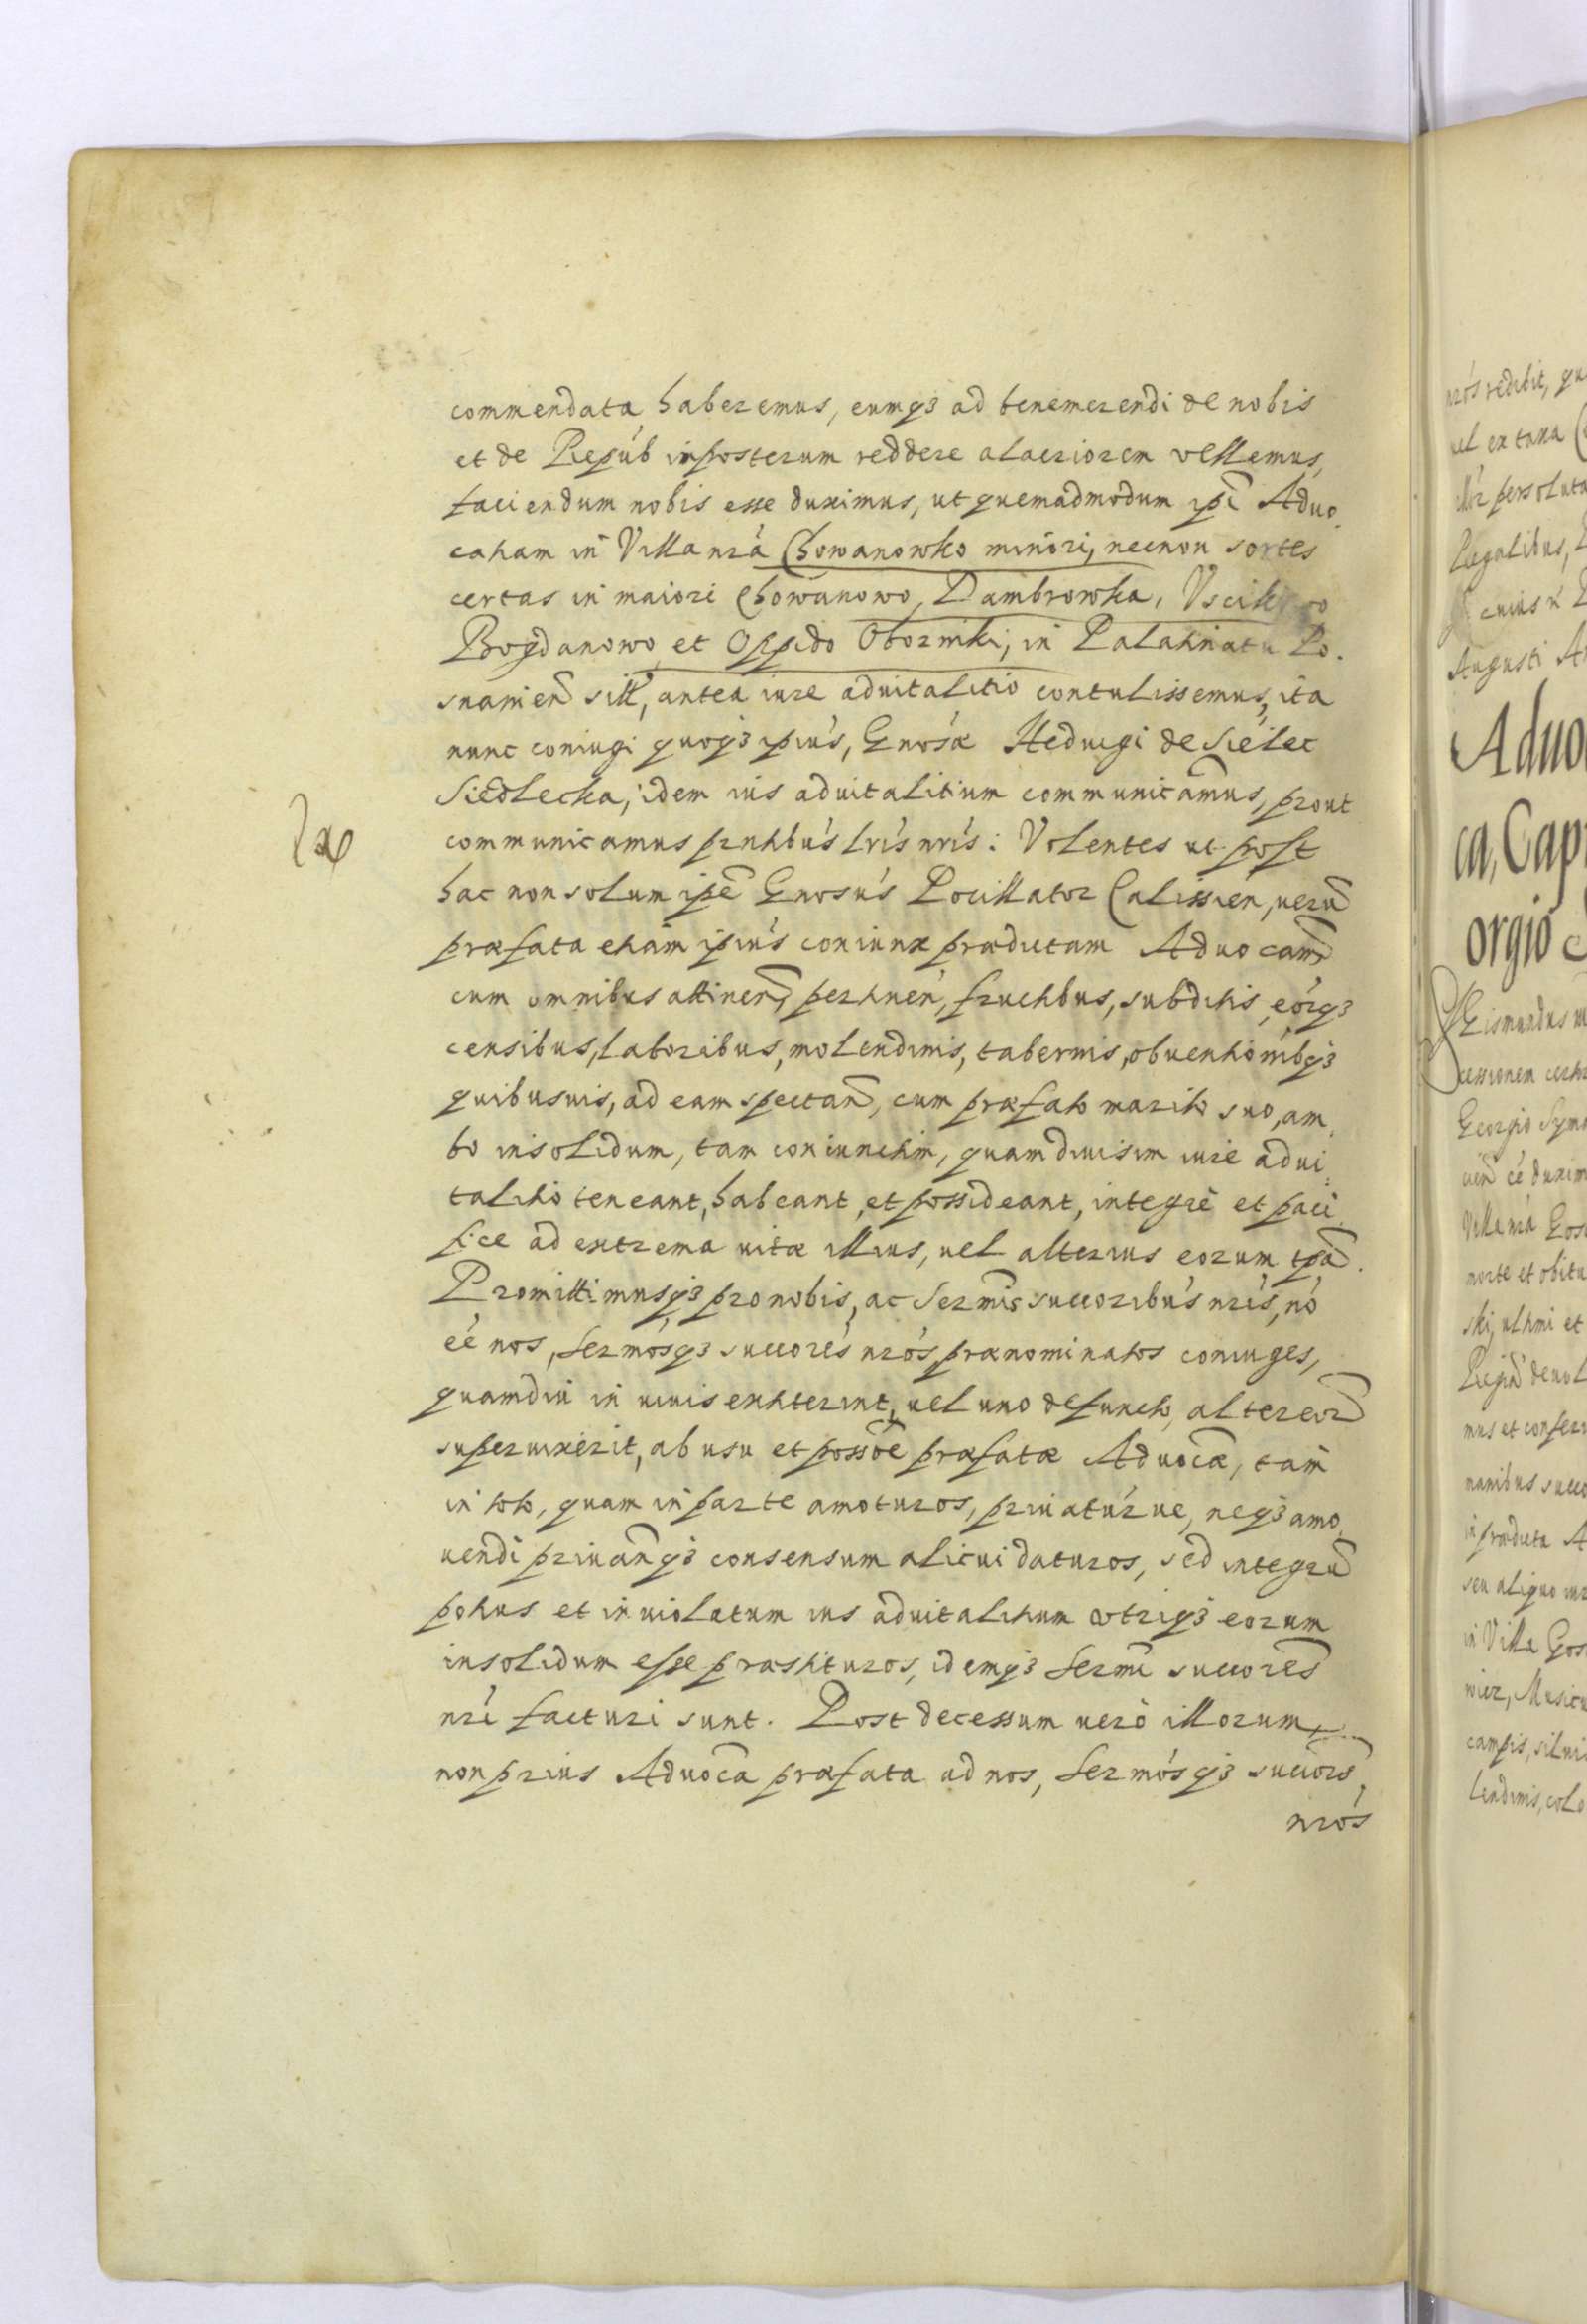 commendata haberemus, eumq3 ad benemerendi de nobis
et de Repub inposterum reddere alacriorem vellemus,
faciendum nobis esse duximus, ut quemadmodum ipi Aduo,
catiam in Villa nrá Chowanowko minori, necnon sortes
certas in maiori Chowanowo, Dambrowka,
Bogdanowo et Oppido Oborniki, in Palatinatu Po.
snanien sitt, antea iure aduitalitio contulissemus, ita
nunc coniugi quoq3 ipiús, Gnosæ Heduigi de Sielec
Siedlecka, idem ius aduitalitium communicamus, prout
communicamus prntibús lris nris: Volentes ut post
hac non solum ipe Gnosús Pocillator Calissien, verū
præfata etiam ipiús coniunx prædictam Aduocam
cum omnibus attinen, pertinen, fructibus, subditis, eorq3
censibus, laboribus, molendinis, tabernis, obuentionibq3
quibusuis, ad eam spectan, cum præfato marito suo, am,
bo insolidum, tam coniunctim, quam diuisim iure adui,
talitio teneant, habeant, et possideant, integrè et paci
fice ad extrema vitæ illius, vel alterius eorum tpa.
Promittimusq3 pro nobis, ac Sermis succoribús nris, nó
eé nos, Sermósq3 succorés nrós, prænominatos coniuges,
quamdiu in viuis extiterint, vel uno defuncto, alter eor
superuixerit, ab usu et possoe præfatæ Aduocæ, tam
in toto, quam in parte amoturos, priuatúrue, neq3 amo,
uendi priuanq3 consensum alicui daturos, sed integrū
potius et inuiolatum ius aduitalitium vtriq3 eorum
insolidum esse præstituros, idemq3 Sermi succores
nri facturi sunt. Post decessum verò illorum
non prius Aduoca præfata ad nos, Sermósq3 succors,
nrós
nrós redibit, qu
vel ex taxa
persoluta
Regalibus,
cuius
Augusti
Aduo
ca, Cap
orgio
Gismundus
cessionem
Georgio Sym
uen cé duxim
Villa nrá Gos
morte et obitu
ski, ultimi et
Regia deuol
mus et confer
manibus succo
in prædicta A
seu aliquo iur
in Villa Gos
wier, Musicu
campis, silui
lendinis, colo